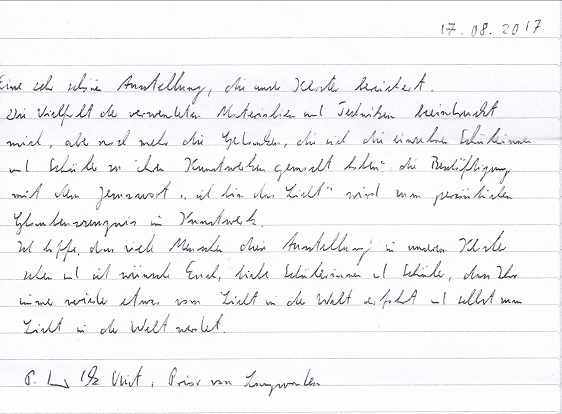 17.08.2017
Eine sehr schöne Ausstellung, die unser Kloster bereichert.
Die Vielfalt der verwendeten Materialien und Techniken beeindruckt
mich, aber noch mehr die Gedanken, die sich die einzelnen Schülerinnen
und Schüler zu ihren Kunstwerken gemacht haben: die Beschäftigung
mit dem Jesuswort „ich bin das Licht" wird zum persönlichen
Glaubenszeugnis im Kunstwerk.
Ich hoffe, dass viele Menschen diese Ausstellung in unserem Kloster
sehen und ich wünsche Euch, liebe Schülerinnen und Schüler, dass Ihr
immer wieder etwas vom Licht in der Welt erfahrt und selbst zum
Licht in der Welt werdet.
P. Prior von Langwaden